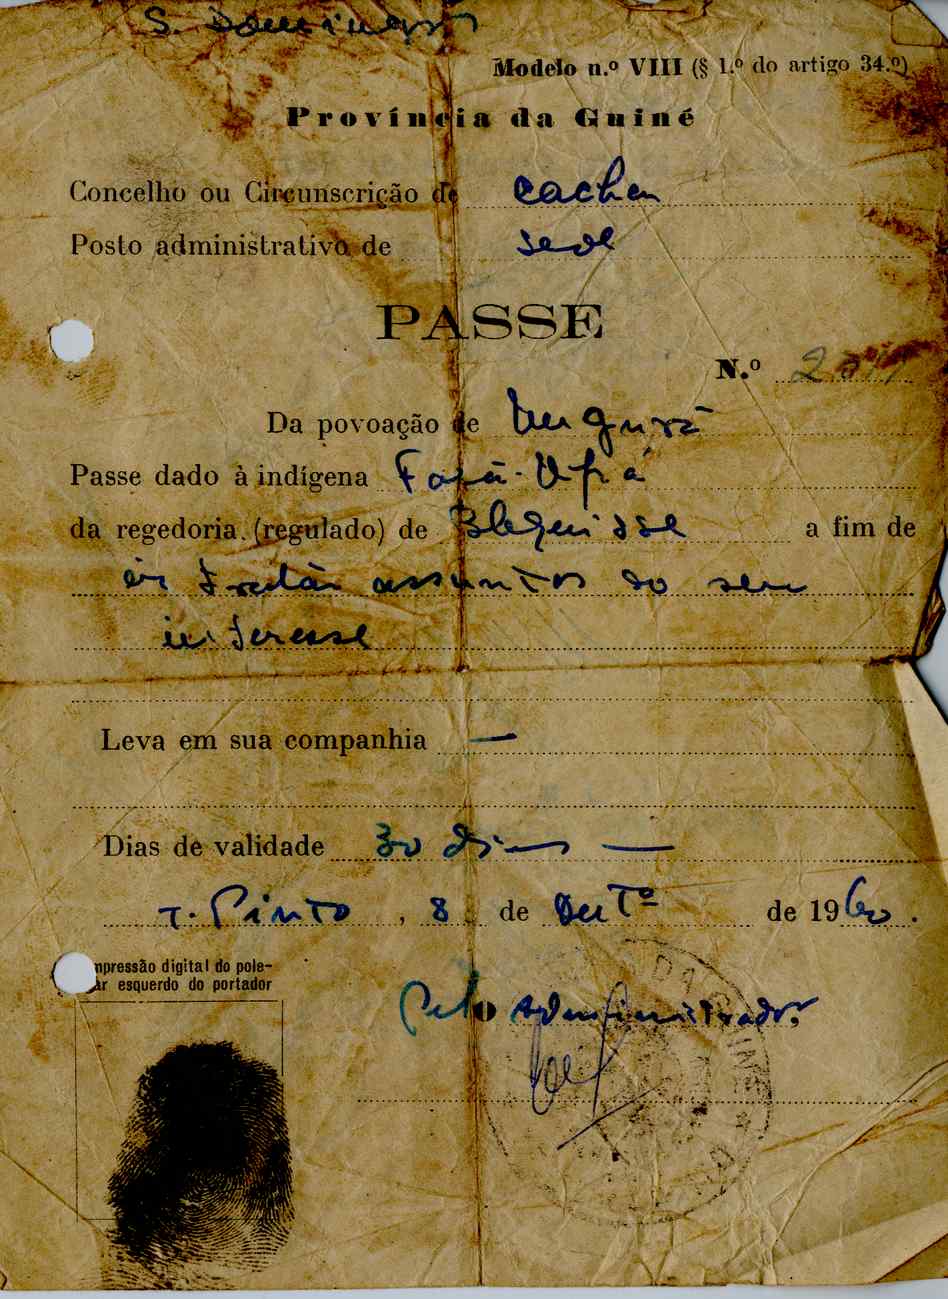 S. Domingos
Modelo n.º VIII (§ 1.º do artigo 34.º)
Província da Guiné
Concelho ou Circunscrição de Cacheu
Posto administrativo de Sede
PASSE
N.º
Da povoação de
Passe dado à indígena
da regedoria (regulado) de Bleguisse a fim de
ir tratar assuntos do seu
interesse
Leva em sua companhia —
Dias de validade 30 dias —
T. Pinto, 8 de de 1960.
mpressão digital do pole-
ar esquerdo do portador
Pelo Administrador,
DA GUINÉ